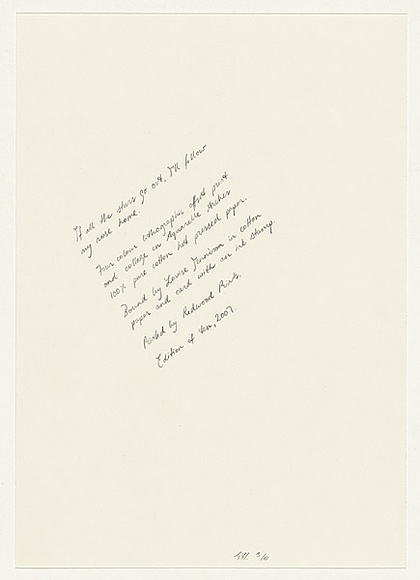 If all the stars go out, I'll follow
my nose home.
Four colour lithographic offset print
and collage on Aquarelle Arches
100% pure cotton hot pressed paper.
Bound by Louise in cotton
paper and card with an ink stamp.
Printed by Redwood Prints.
Edition of ten, 2007.
3/10